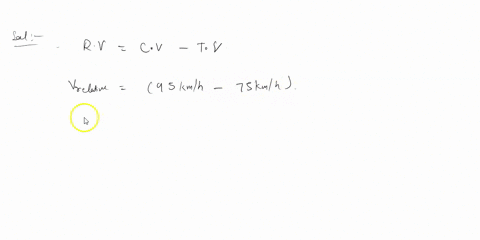 Sol:-
R.V = C.V - T.V
Vrelative = (95 km/h - 75 km/h).